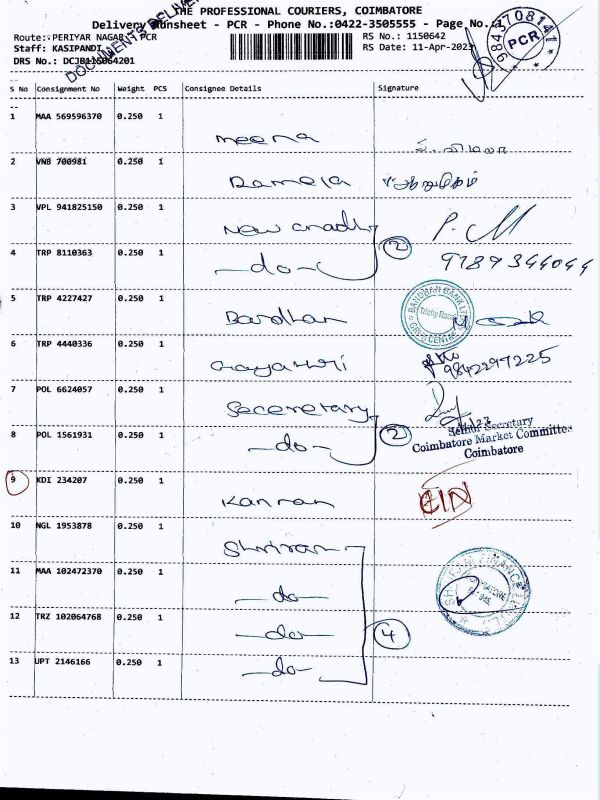 THE PROFESSIONAL COURIERS, COIMBATORE
Delivery Runsheet - PCR - Phone No.:0422-3505555 - Page No.:1
Route: PERIYAR NAGAR, PCR RS No.: 1150642
Staff: KASIPANDI RS Date: 11-Apr-2023
DRS No.: DCJB115064201
DOCUMENTS DELIVER
9843708141
PCR
S No Consignment No Weight PCS Consignee Details Signature
1 MAA 569596370 0.250 1 Meena
2 VNB 700981 0.250 1 Ramela
3 VPL 941825150 0.250 1 New
4 TRP 8110363 0.250 1 —do— 2 9789344044
5 TRP 4227427 0.250 1 Bandhan BANDHAN BANK LTD
6 TRP 4440336 0.250 1 Gayathri 9842297225
7 POL 6624057 0.250 1 Secretary
8 POL 1561931 0.250 1 —do— 2 Secretary
Coimbatore Market Committee
Coimbatore
9 KDI 234207 0.250 1 Kannan
10 NGL 1953878 0.250 1 Shriram
11 MAA 102472370 0.250 1 —do—
12 TRZ 102064768 0.250 1 —do— 4
13 UPT 2146166 0.250 1 —do—